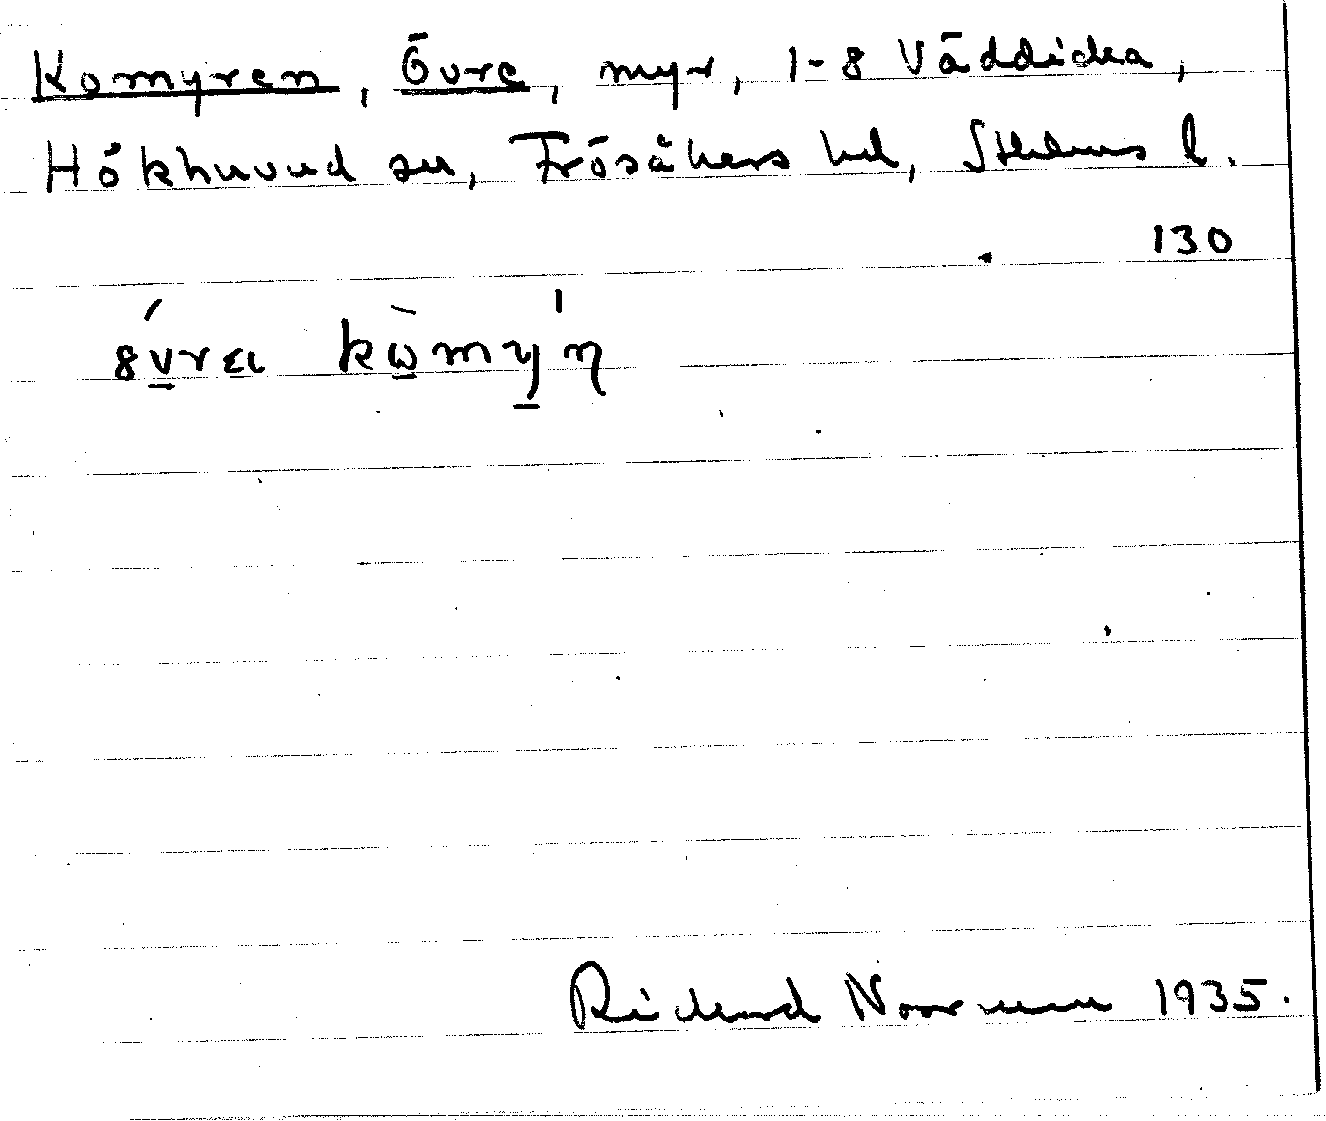 Komyren, Övre, myr, 1-8 Väddicka,
Hökhuvud sn, Frösåkers hd, Sthlms l.
130
Rickard Norrman 1935.